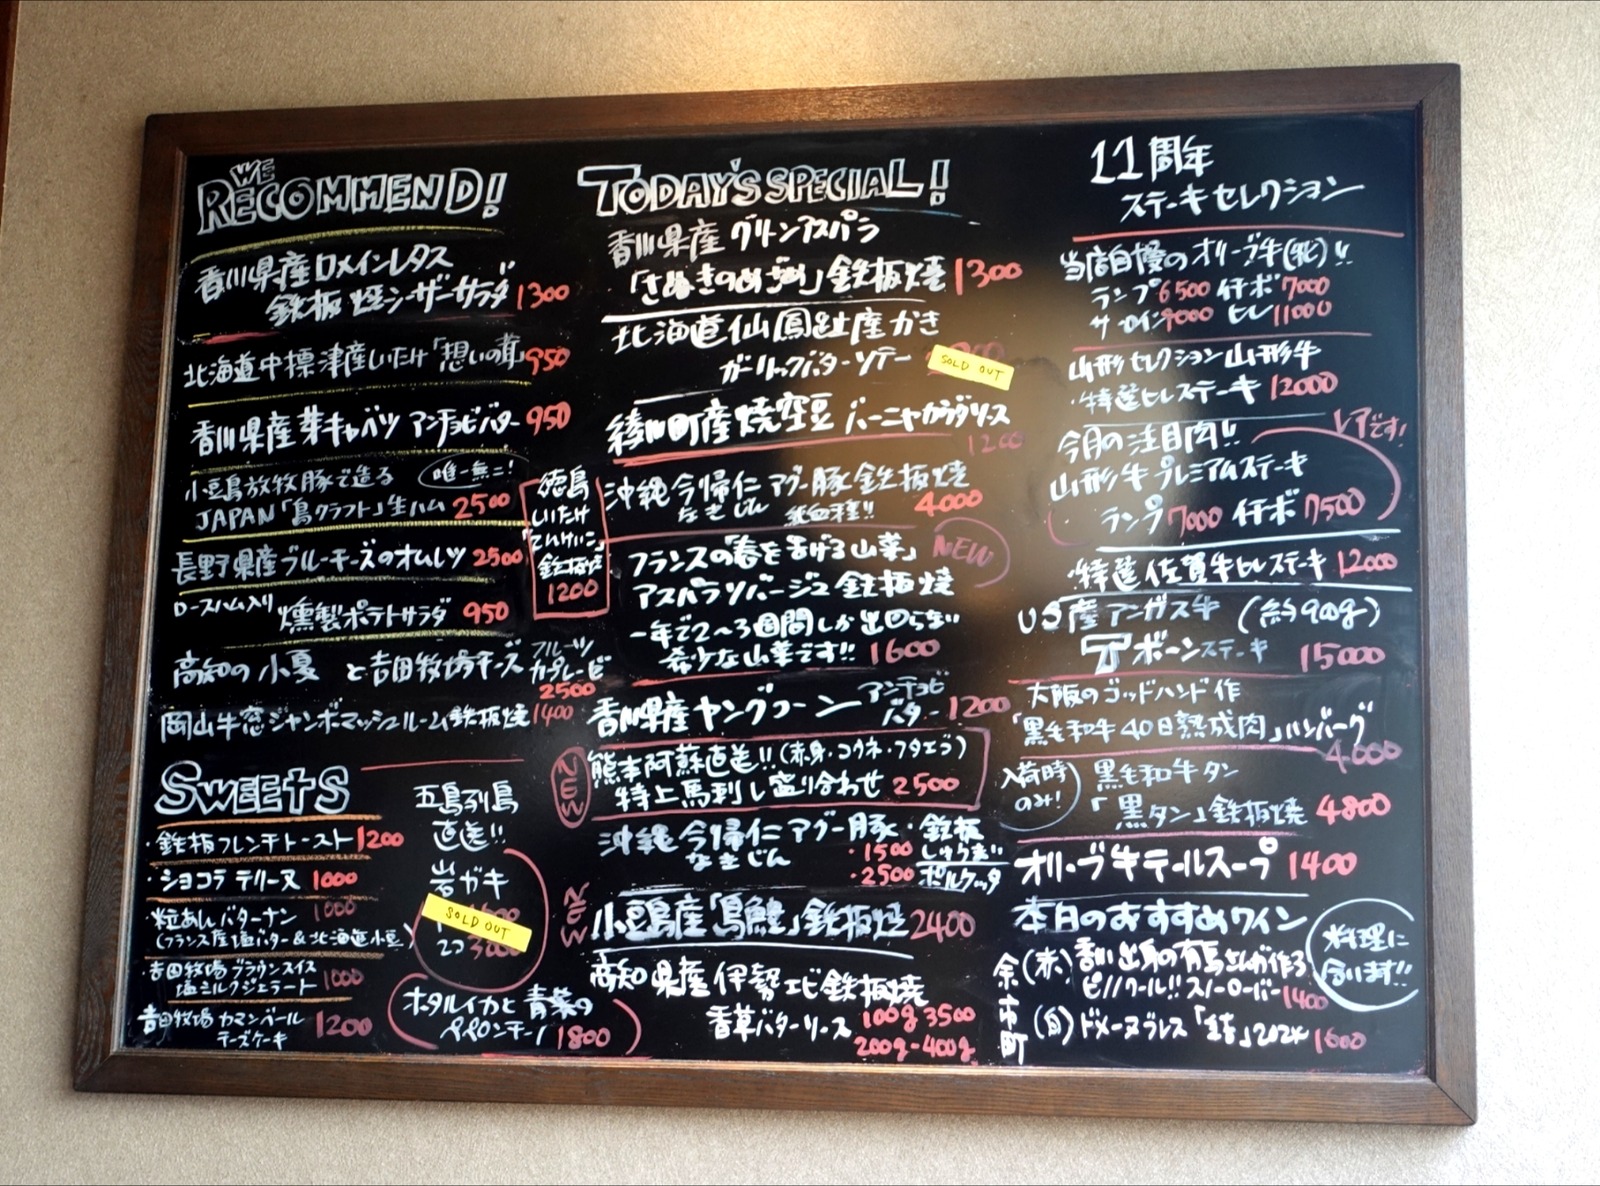 WE
RECOMMEND!
香川県産ロメインレタス
鉄板焼シーザーサラダ 1300
北海道中標津産しいたけ「想いの茸」950
香川県産芽キャベツ アンチョビバター 950
小豆島放牧豚で造る 唯一無二!
JAPAN「島クラフト」生ハム 2500
長野県産ブルーチーズのオムレツ 2500
ロースハム入り 燻製ポテトサラダ 950
高知の小夏 と吉田牧場チーズ フルーツ
カプレーゼ
2500
岡山牛窓ジャンボマッシュルーム鉄板焼 1400
徳島
しいたけ
「てんけいこ」
鉄板焼
1200
SWEETS
・鉄板フレンチトースト 1200
・ショコラテリーヌ 1000
粒あんバターナン 1000
(フランス産塩バター&北海道小豆)
吉田牧場ブラウンスイス
塩ミルクジェラート 1000
吉田牧場カマンベール
チーズケーキ 1200
五島列島
直送!!
岩ガキ
SOLD OUT
2つ
ホタルイカと青菜の
ペペロンチーノ 1800
TODAY'S SPECIAL!
香川県産グリーンアスパラ
「さぬきのめざめ」鉄板焼 1300
北海道仙鳳趾産かき
ガーリックバターソテー SOLD OUT
綾川町産焼空豆 バーニャカウダソース
1200
沖縄今帰仁アグー豚鉄板焼
なきじん 純血種!! 4000
フランスの「春を告げる山菜」 NEW
アスパラソバージュ鉄板焼
一年で2~3週間しか出回らない
希少な山菜です!! 1600
香川県産ヤングコーン アンチョビ
バター 1200
熊本阿蘇直送!!(赤身・コウネ・フタエゴ)
特上馬刺し盛り合わせ 2500
沖縄今帰仁アグー豚・鉄板
なきじん ・1500 しゅうまい
・2500 ポルケッタ
小豆島産「島鱧」鉄板焼 2400
高知県産伊勢エビ鉄板焼
香草バターソース 100g 3500
200g-400g
11周年
ステーキセレクション
当店自慢のオリーブ牛(牝)!!
ランプ6500 イチボ7000
サーロイン9000 ヒレ11000
山形セレクション山形牛
・特選ヒレステーキ 12000
今月の注目肉!! レアです!
山形牛プレミアムステーキ
ランプ7000 イチボ7500
・特選佐賀牛ヒレステーキ 12000
US産アンガス牛 (約900g)
Tボーンステーキ 15000
大阪のゴッドハンド作
「黒毛和牛40日熟成肉」ハンバーグ
4000
入荷時
のみ!
黒毛和牛タン
「黒タン」鉄板焼 4800
オリーブ牛テールスープ 1400
本日のおすすめワイン
料理に
合います!!
余市町
(赤)香川出身の有馬さんが作る
ピノノワール!! スノーローバー 1400
(白)ドメーヌブレス 2024 1600